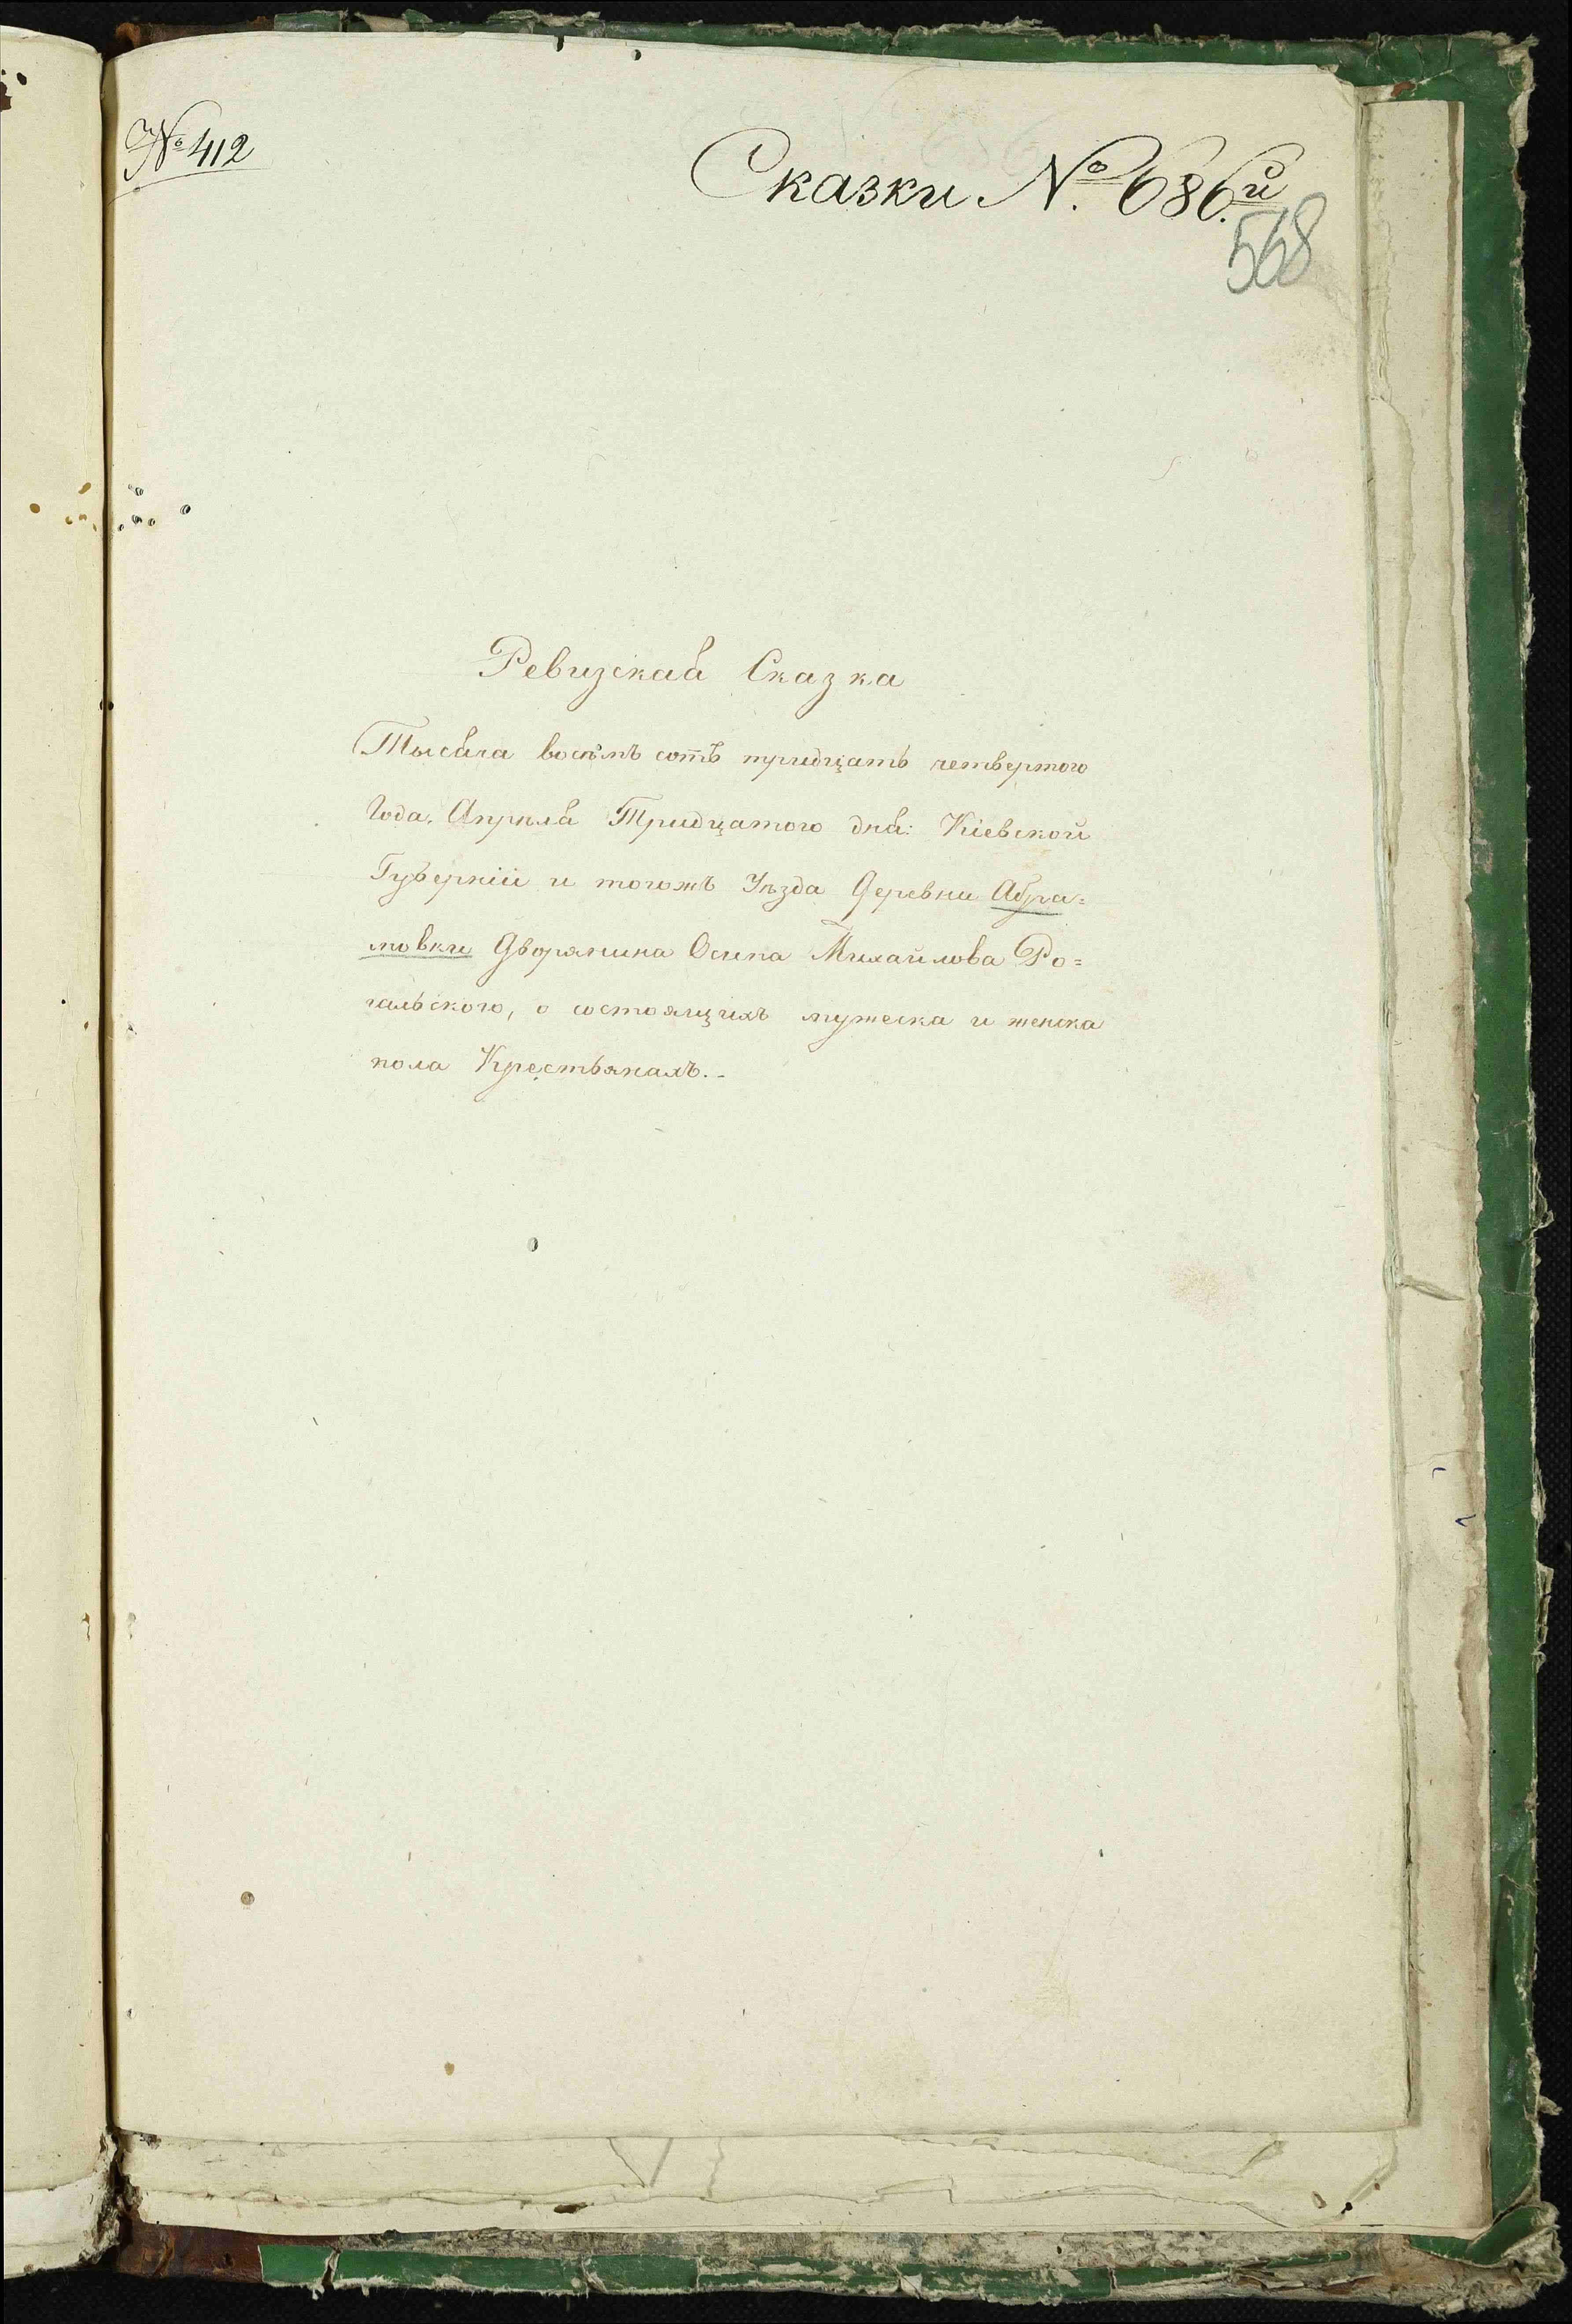 № 412
Сказки №. 686.й
568
Ревизская Сказка
Тысяча восемь сотъ тридцать четвертого
Года, Апреля Тридцатого дня: Кіевской
Губерніи и тогожъ Уезда Деревни Абра=
мовки Дворянина Осипа Михайлова Ро=
гальского, о состоящихъ мужеска и женска
пола Крестьянахъ.-